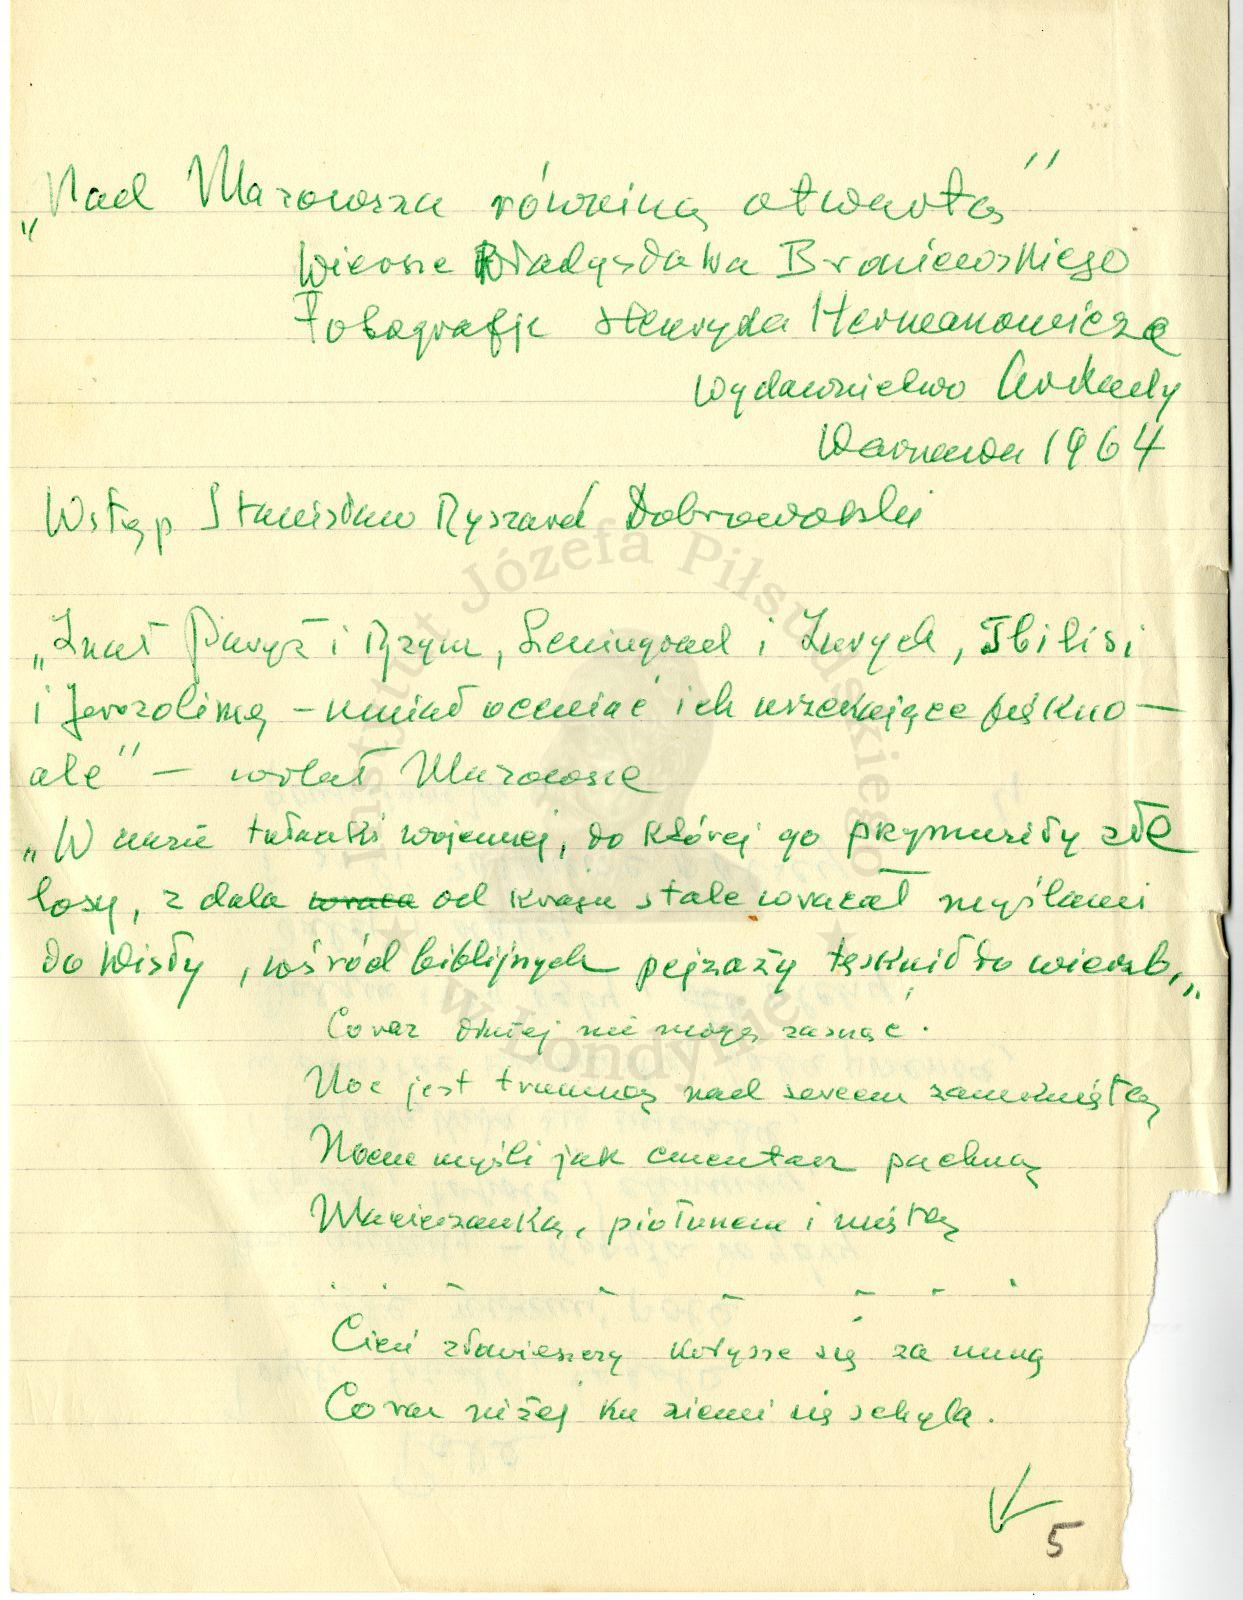 „Nad Mazowsza równiną otwartą”
Wiersze Władysława Broniewskiego
Fotografje Henryka Hermanowicza
Wydawnictwo Arkady
Warszawa 1964
Wstęp Stanisław Ryszard Dobrowolski
„Znał Paryż i Rzym, Leningrad i Zurych, Tbilisi
i Jerozolimę – umiał oceniać ich urzekające piękno –
ale” – wolał Mazowsze
„W czasie tułaczki wojennej, do której go przymusiły złe
losy, z dala wraca od kraju stale wracał myślami
do Wisły, wśród biblijnych pejzaży tęsknił do wierzb,„
Coraz dłużej nie mogę zasnąć.
Noc jest trumną nad sercem zamkniętą
Nocne myśli jak cmentarz pachną
Macierzanką, piołunem i miętą
. . - - - - - .
Cień złowieszczy kołysze się za mną
Coraz niżej ku ziemi się schyla.
5
Instytut Józefa Piłsudskiego
w Londynie